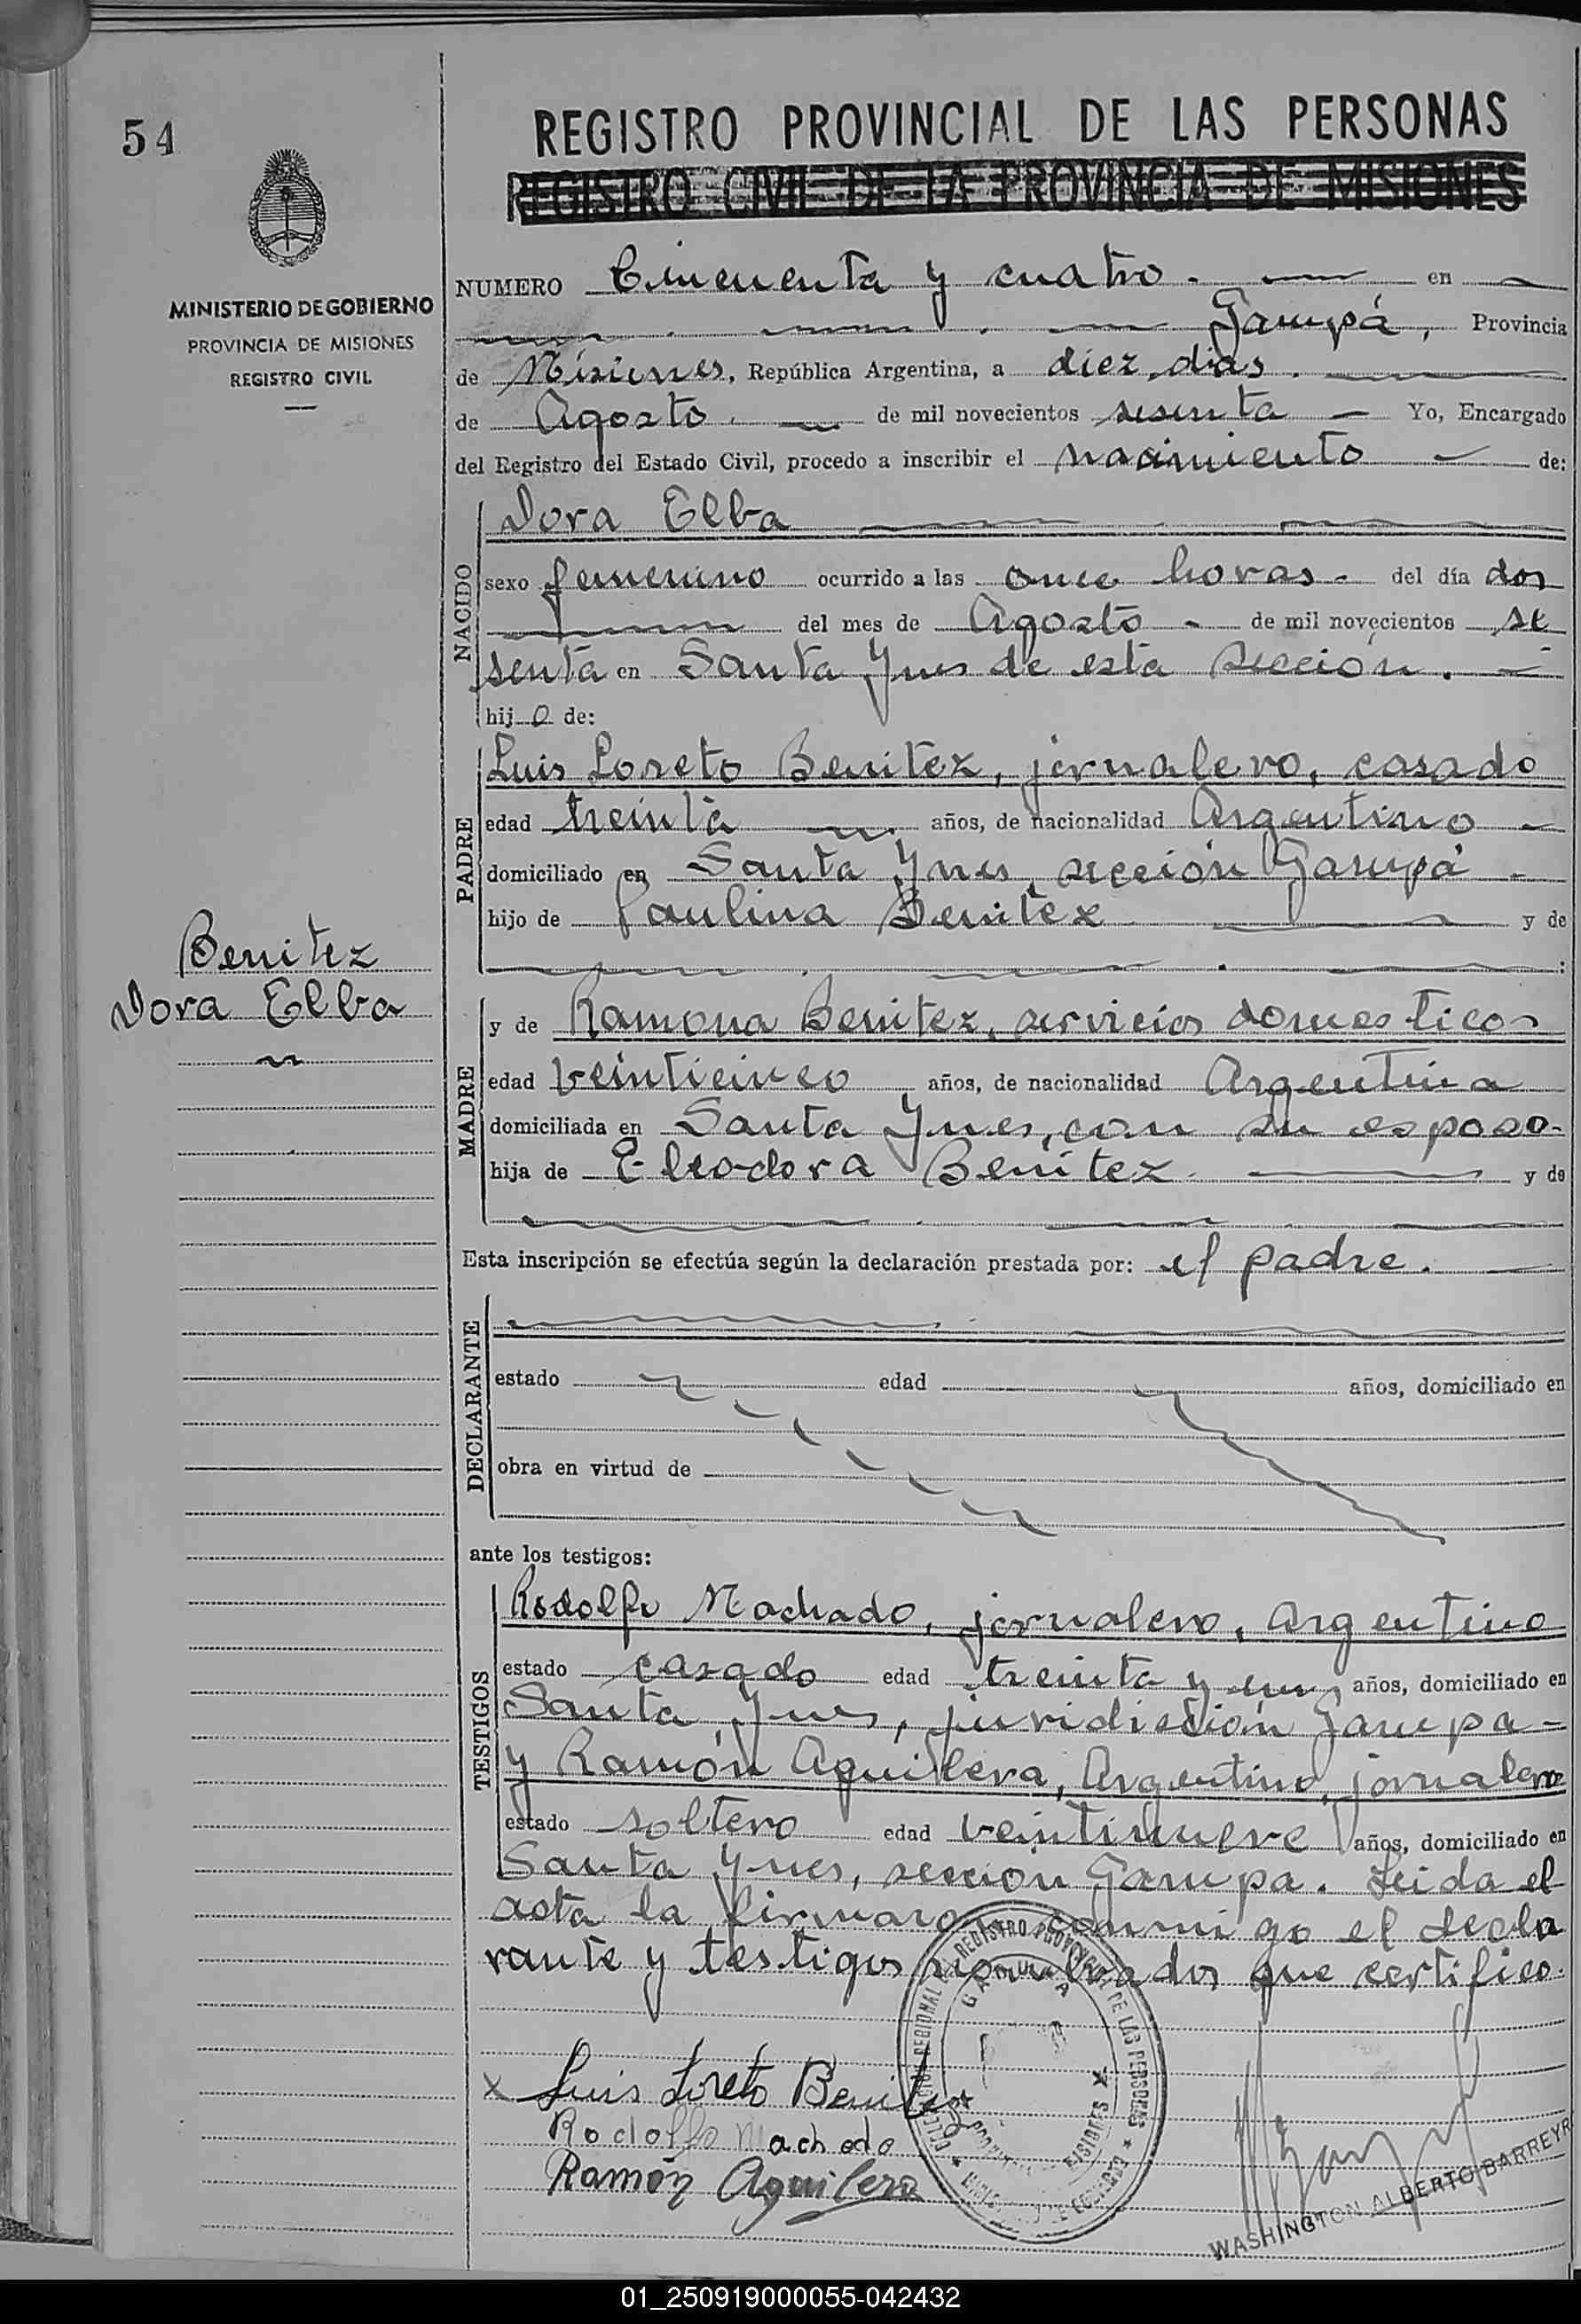 54
MINISTERIO DE GOBIERNO
PROVINCIA DE MISIONES
REGISTRO CIVIL
Benitez
Dora Elba
REGISTRO PROVINCIAL DE LAS PERSONAS
REGISTRO CIVIL DE LA PROVINCIA DE MISIONES
NUMERO Cincuenta y cuatro. en
Garupá, Provincia
de Misiones, República Argentina, a diez dias.
de Agosto. de mil novecientos sesenta Yo, Encargado
del Registro del Estado Civil, procedo a inscribir el nacimiento de:
NACIDO
Dora Elba
sexo femenino ocurrido a las once horas. del día dos
del mes de Agosto de mil novecientos se
senta en Santa Ynes de esta sección.
hij a de:
PADRE
Luis Loreto Benitez, jornalero, casado
edad treinta años, de nacionalidad Argentino
domiciliado en Santa Ynes, sección Garupá
hijo de Paulina Benitez y de
MADRE
y de Ramona Benitez, servicios domesticos
edad veinticinco años, de nacionalidad Argentina
domiciliada en Santa Ynes, con su esposo.
hija de Eleodora Benitez. y de
Esta inscripción se efectúa según la declaración prestada por: el padre.
DECLARANTE
estado edad años, domiciliado en
obra en virtud de
ante los testigos:
TESTIGOS
Rodolfo Machado, jornalero, Argentino
estado casado edad treinta y un años, domiciliado en
Santa Ynes, juridisción Garupa
y Ramón Aguilera, Argentino, jornalero
estado soltero edad veintinueve años, domiciliado en
Santa Ynes, sección Garupa. Leida el
acta la firmaron conmigo el decla
rante y testigos nombrados que certifico.
x Luis Loreto Benitez
Rodolfo Machado
Ramón Aguilera
REGISTRO PROVINCIAL DE LAS PERSONAS
GARUPA
MISIONES
WASHINGTON ALBERTO BARREYR
01_250919000055-042432